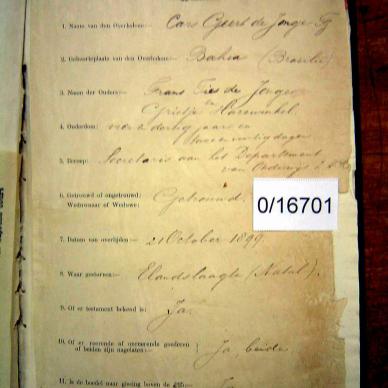 1. Naam van den Overledene:— Cars Geert de Jonge
2. Geboorteplaats van den Overledene:— Bahia (Brasilië)
3. Namen der Ouders:— Frans de Jonge
en
Grietje
4. Ouderdom:— vier & dertig jaren en
dagen
5. Beroep:— Secretaris aan het Departement
van Onderwijs
6. Getrouwd of ongetrouwd; Getrouwd.
Weduwnaar of Weduwe:
0/16701
7. Datum van overlijden :— 21 October 1899.
8. Waar gestorven:— Elandslaagte (Natal).
9. Of er testament bekend is: Ja.
10. Of er roerende of onroerende goederen
of beiden zijn nagelaten:— } Ja, beide
11. Is de boedel naar gissing boven de